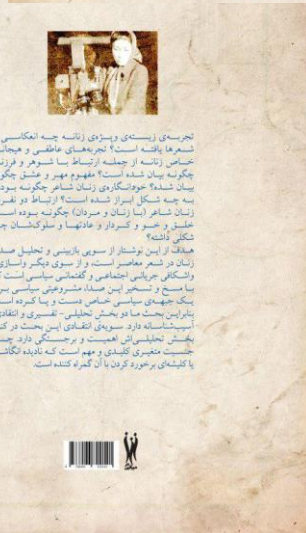 تجربه‌ی زیسته‌ی ویژه‌ی زنانه چه انعکاسی
شعرها یافته است؟ تجربه‌های عاطفی و هیجان
خاص زنانه از جمله ارتباط با شوهر و فرزند
چگونه بیان شده است؟ مفهوم مهر و عشق چگو
بیان شده؟ خودانگاره‌ی زنان شاعر چگونه بود
به چه شکل ابراز شده است؟ ارتباط دو نفر
زنان شاعر (با زنان و مردان) چگونه بوده اس
خلق و خو و کردار و عادتها و سلوک‌شان چ
شکلی داشته؟
هدف از این نوشتار از سویی بازبینی و تحلیل صد
زنان در شعر معاصر است، و از سوی دیگر واسازی
واشکافی جریانی اجتماعی و گفتمانی سیاسی است ک
با مسخ و تسخیر این صدا، مشروعیتی سیاسی بر
یک جبهه‌ی سیاسی خاص دست و پا کرده اس
بنابراین بحث ما دو بخش تحلیلی- تفسیری و انتقادی
آسیب‌شناسانه دارد. سویه‌ی انتقادی این بحث در کن
بخش تحلیلی‌اش اهمیت و برجستگی دارد. چ
جنسیت متغیری کلیدی و مهم است که نادیده انگاش
یا کلیشه‌ای برخورد کردن با آن گمراه کننده است.